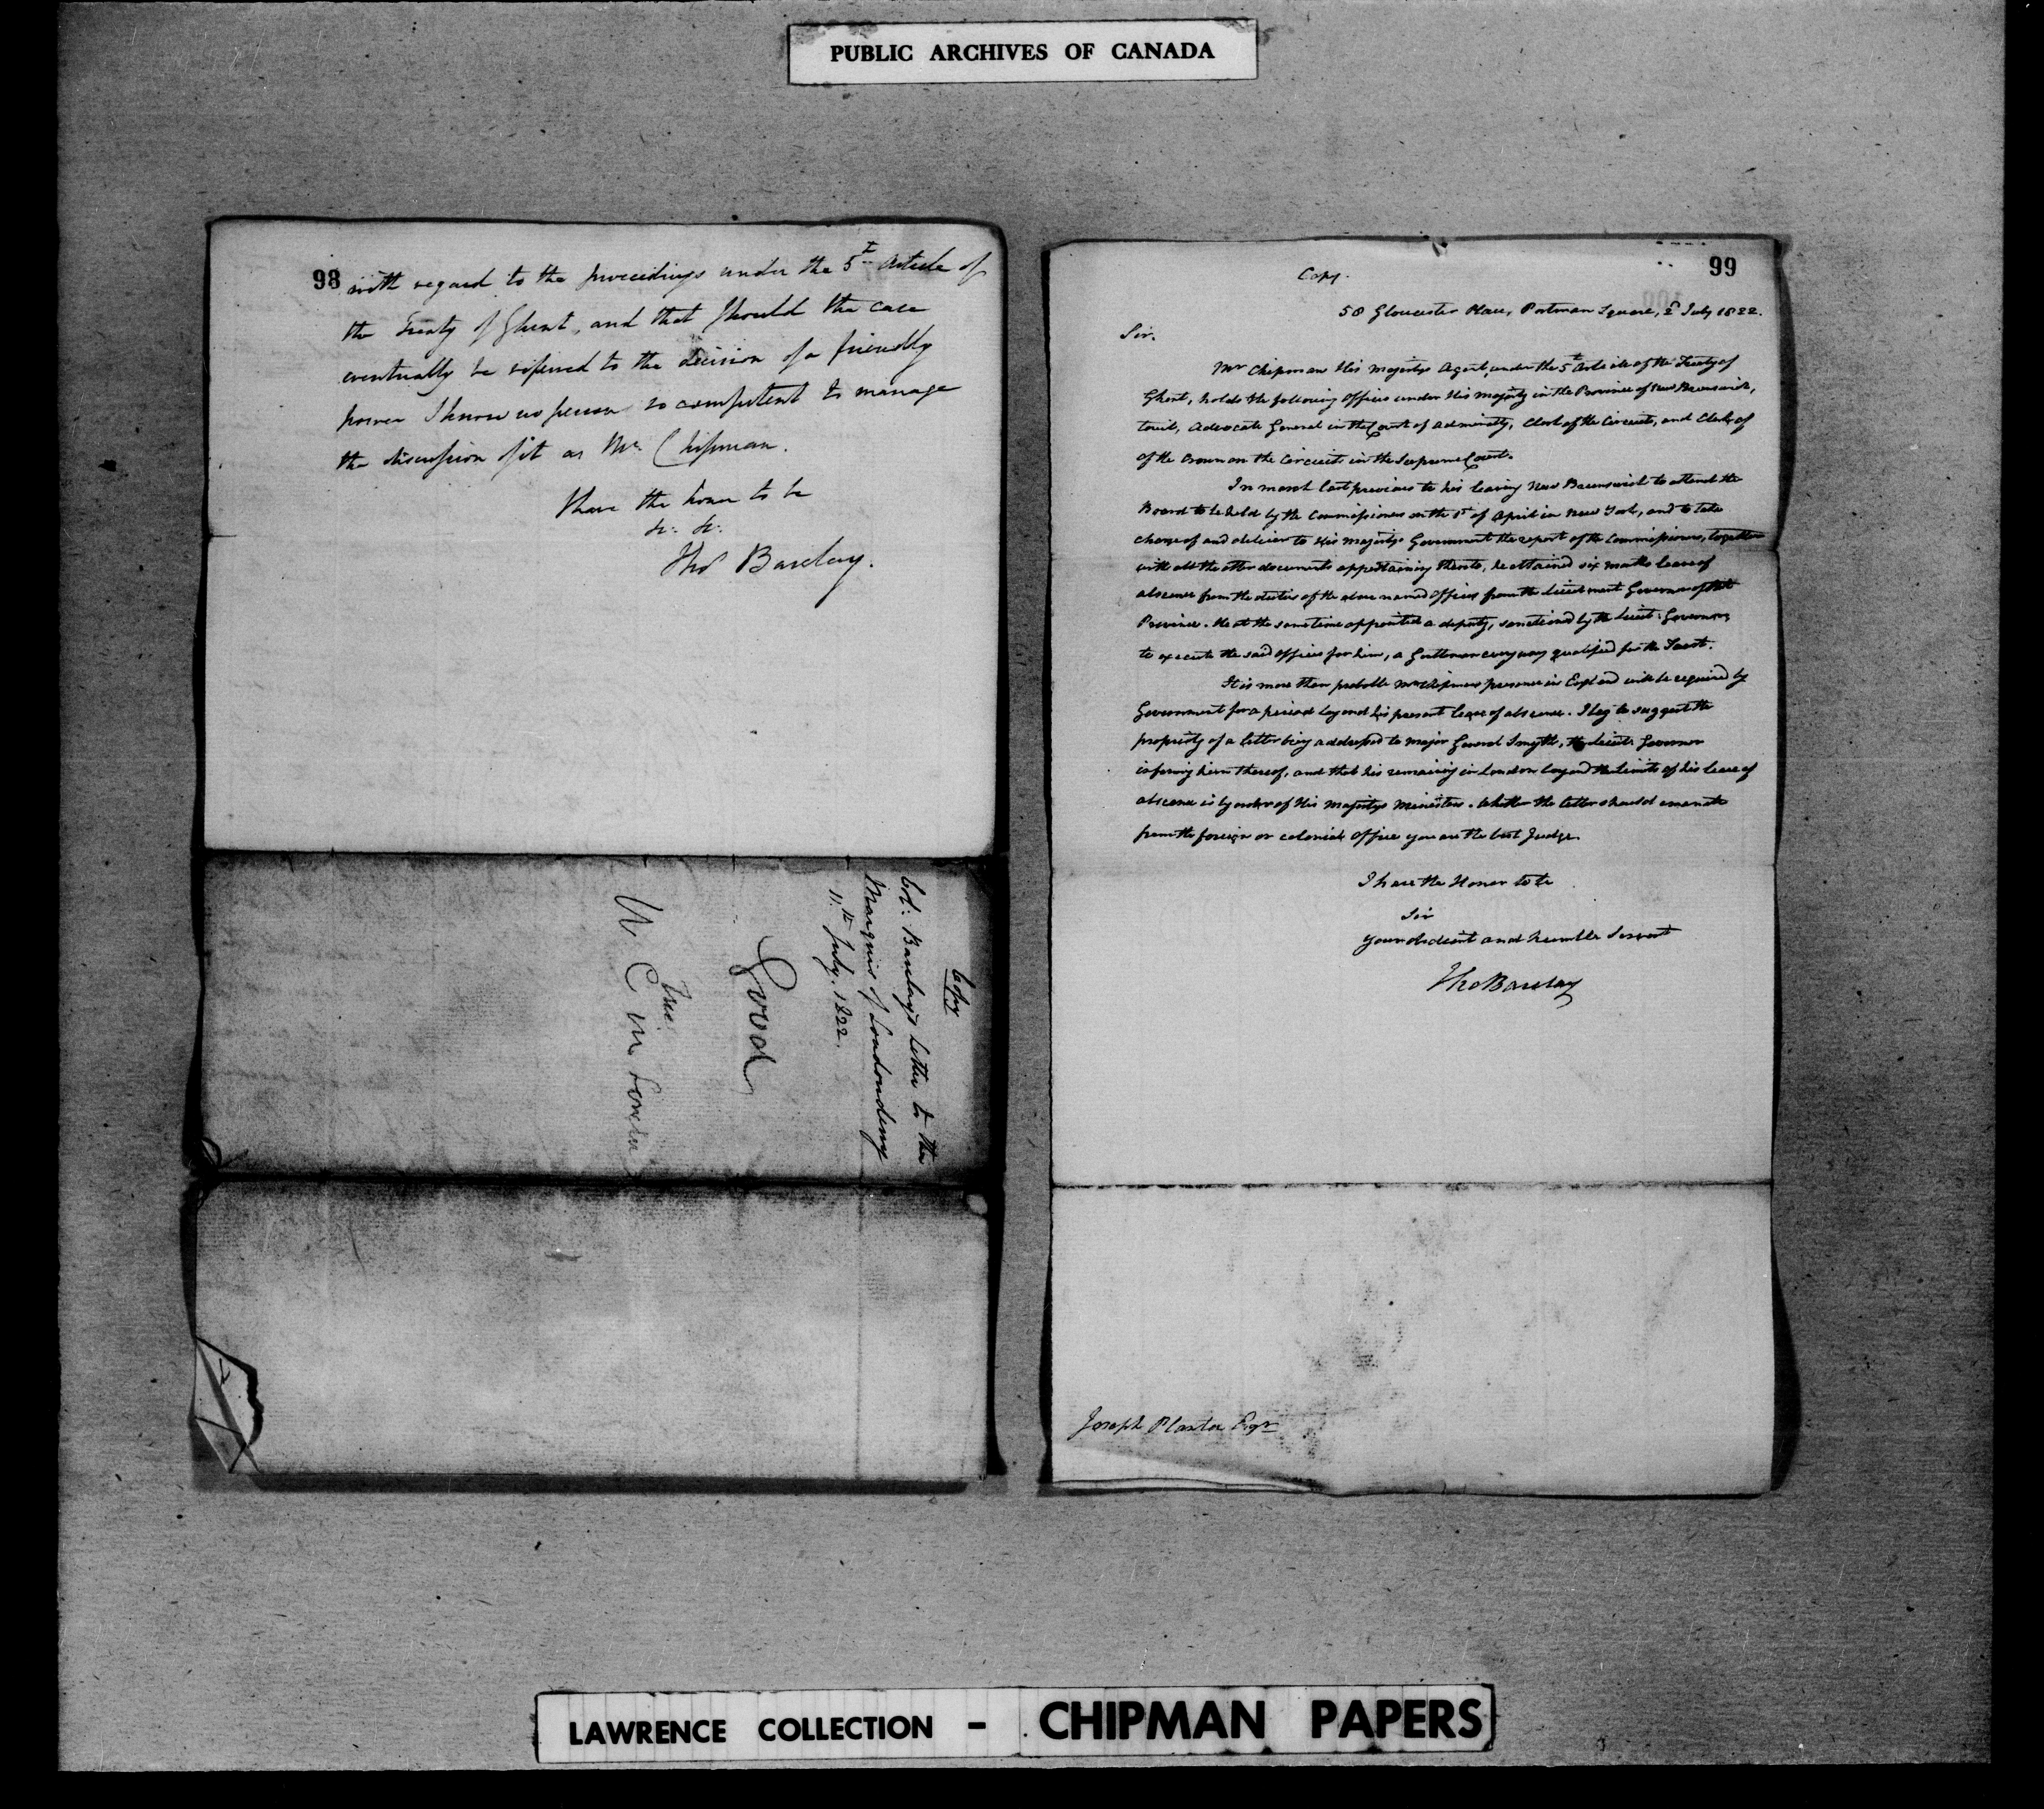 PUBLIC ARCHIVES OF CANADA
98
with regard to the proceedings under the 5th Article of
the Treaty of Ghent, and that should the case
eventually be referred to the decision of a friendly
power I know no person so competent to manage
the discussion of it as Mr. Chipman.
I have the honor to be
&c: &c:
Thos Barclay.
Copy
Col: Barclay's letter to the
Marquis of Londonderry
11th July. 1822.
Good
True
W C in
99
Copy.
58 Gloucester Place, Portman Square, 2d July 1822.
Sir.
Mr Chipman His Majestys Agent, under the 5th Article of the Treaty of
Ghent, holds the following Offices under His Majesty in the Province of New Brunswick,
towit, Advocate General in the Court of Admiralty, Clerk of the Circuits, and Clerk of
of the Crown on the Circuits in the Supreme Court.
In March last previous to his leaving New Brunswick to attend the
Board to be held by the Commissioners on the 1st of April in New York, and to take
charge of and deliver to His Majestys Government the report of the Commissioners, together
with all the other documents appertaining thereto, he obtained six months leave of
absence from the duties of the above named Offices from the Lieutenant Governor of that
Province. He at the same time appointed a deputy, sanctioned by the Lieut: Governor,
to execute the said offices for him, a Gentleman every way qualified for the Trust.
It is more than probable Mr Chipmans presence in England will be required by
Government for a period beyond his present leave of absence. I beg to suggest the
propriety of a letter being addressed to Major General Smyth, the Lieut: Governor
informing him thereof, and that his remaining in London beyond the limits of his leave of
absence is by order of His Majestys Ministers. Whether the letter should emanate
from the foreign or colonial Office you are the best Judge.
I have the Honor to be
Sir
your obedient and humble Servant
Tho Barclay
Joseph Planta Esqr
LAWRENCE COLLECTION - CHIPMAN PAPERS